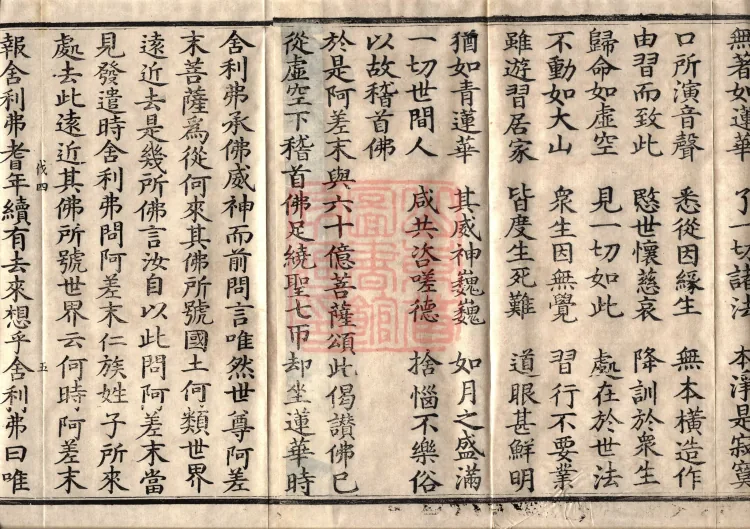 無著如蓮華 了一切諸法 本淨是寂寞
口所演音聲 悉從因緣生 無本橫造作
由習而致此 愍世懷慈哀 降訓於衆生
歸命如虛空 見一切如此 處在於世法
不動如大山 衆生因無覺 習行不要業
雖遊習居家 皆度生死難 道眼甚鮮明
猶如青蓮華 其威神巍巍 如月之盛滿
一切世間人 咸共咨嗟德 捨惱不樂俗
以故稽首佛
於是阿差末與六十億菩薩頌此偈讚佛已
從虛空下稽首佛足繞聖七帀却坐蓮華時
舍利弗承佛威神而前問言唯然世尊阿差
末菩薩爲從何來其佛所號國土何類世界
遠近去是幾所佛言汝自以此問阿差末當
見發遣時舍利弗問阿差末仁族姓子所來
處去此遠近其佛所號世界云何時阿差末
報舍利弗耆年續有去來想乎舍利弗曰唯
伐四 五